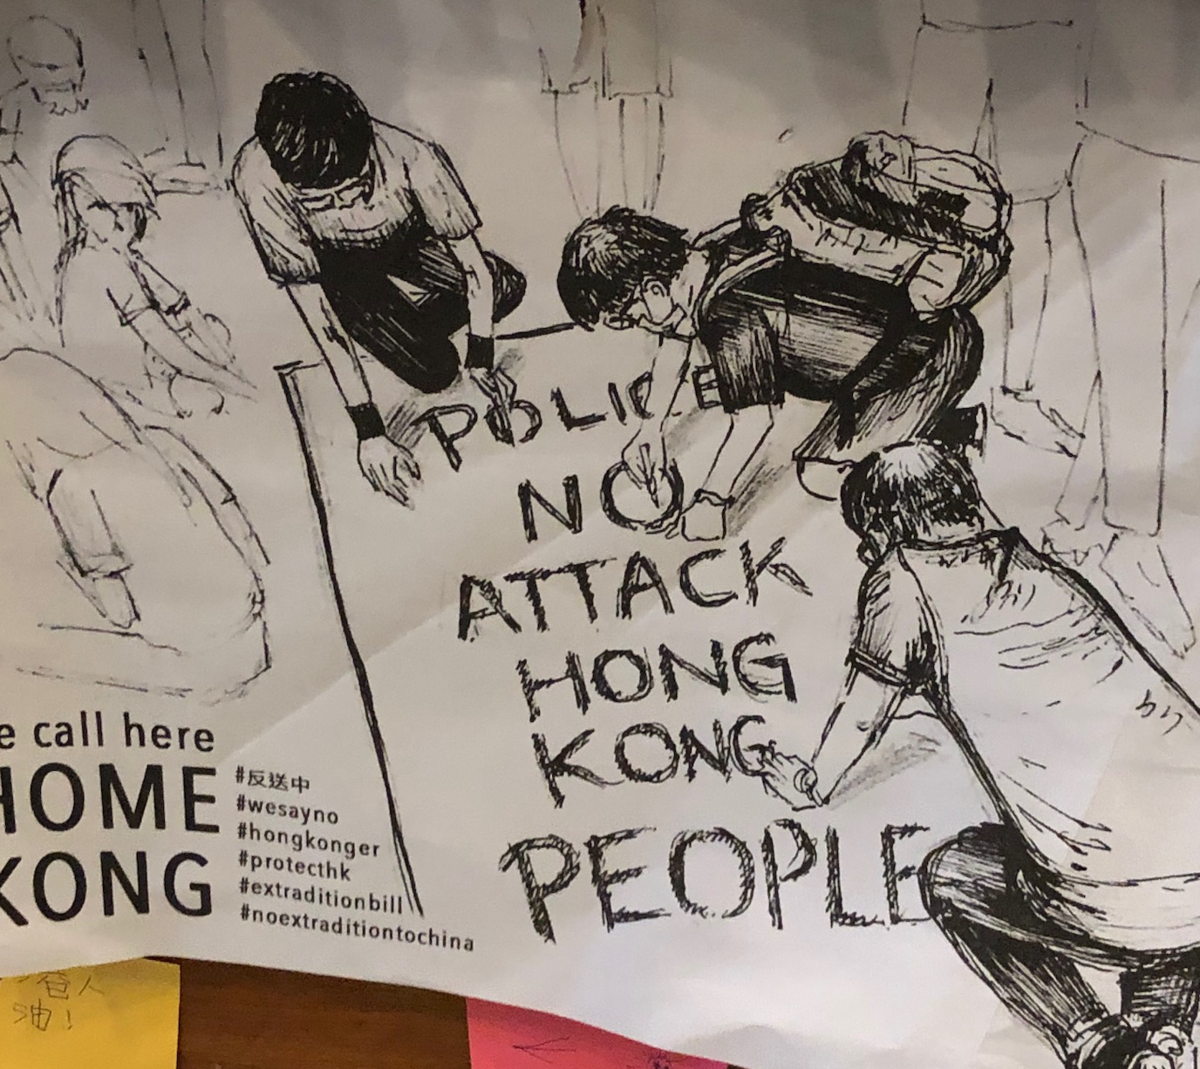 POLICE
NO
ATTACK
HONG
KONG
PEOPLE
e call here
HOME
KONG
#反送中
#wesayno
#hongkonger
#protecthk
#extraditionbill
#noextraditiontochina
油!